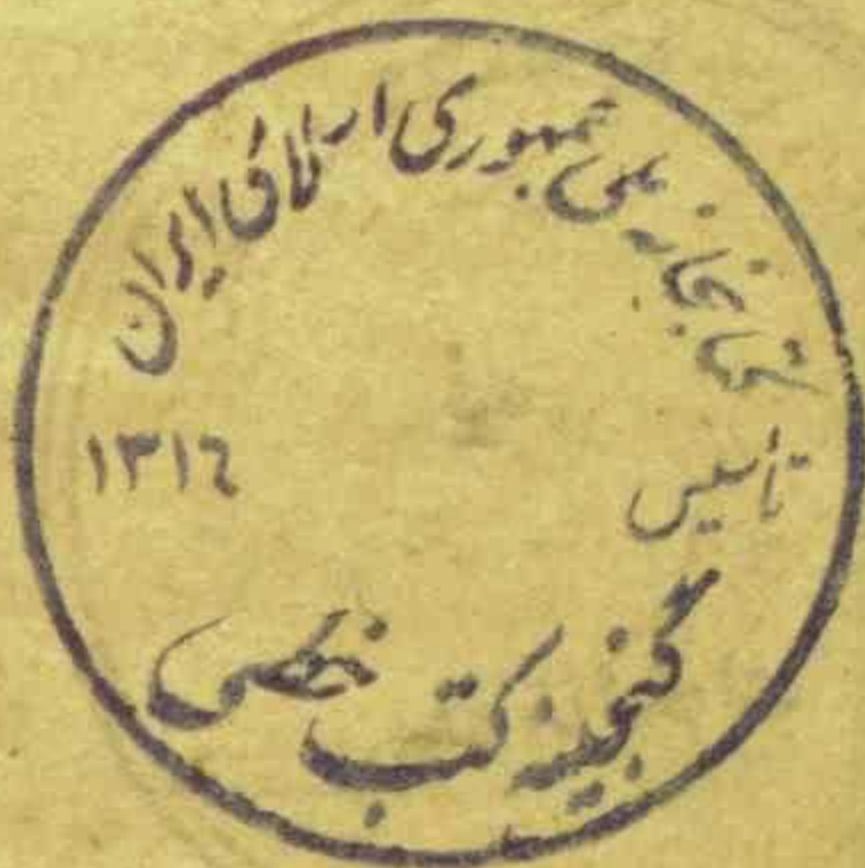 کتابخانه ملی جمهوری اسلامی ایران
تأسیس
۱۳۱٦
گنجینه کتب خطی